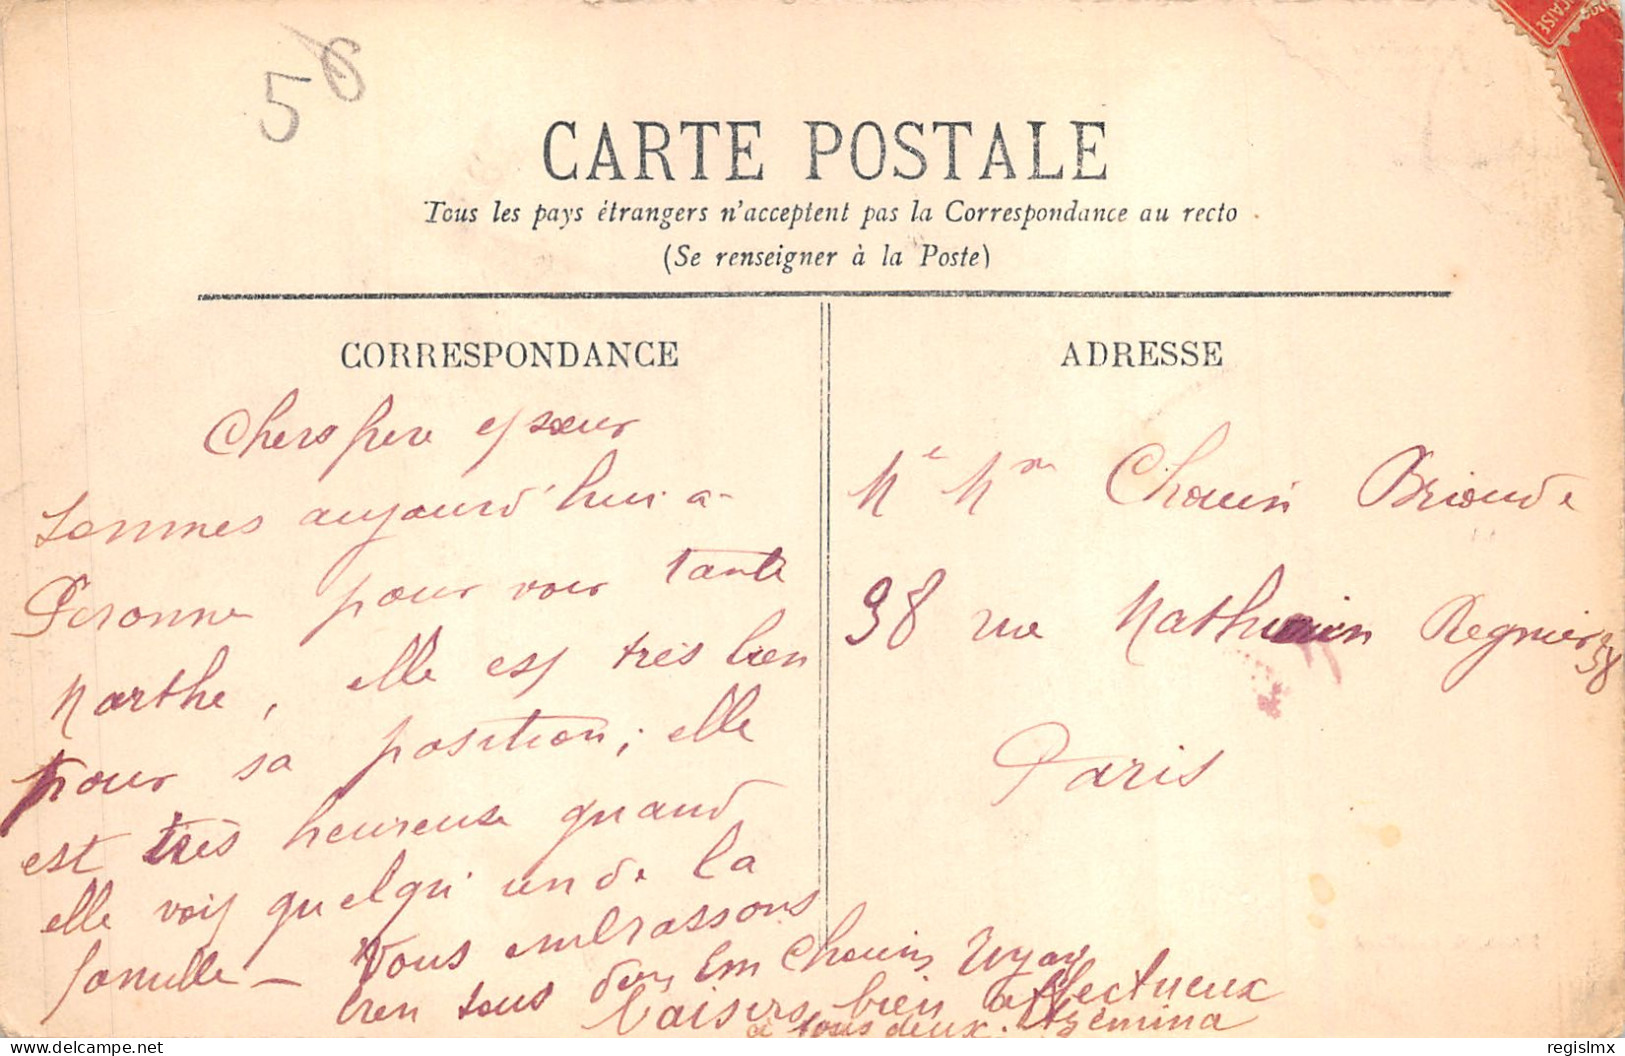 56
CARTE POSTALE
Tous les pays étrangers n'acceptent pas la Correspondance au recto
(Se renseigner à la Poste)
CORRESPONDANCE
ADRESSE
Chers frere et sœur
sommes aujourd'hui a
Peronne pour voir tante
Marthe, elle est très bien
pour sa position; elle
est très heureuse quand
elle voit quelqu'un de la
famille - Vous embrassons
bien tous deux Em Chouin
baisers bien affectueux
à tous deux. Azemina
Mr Mme Chouin Brioude
98 rue Mathurin Regnier 38
Paris
CAISE
delcampe.net
regislmx